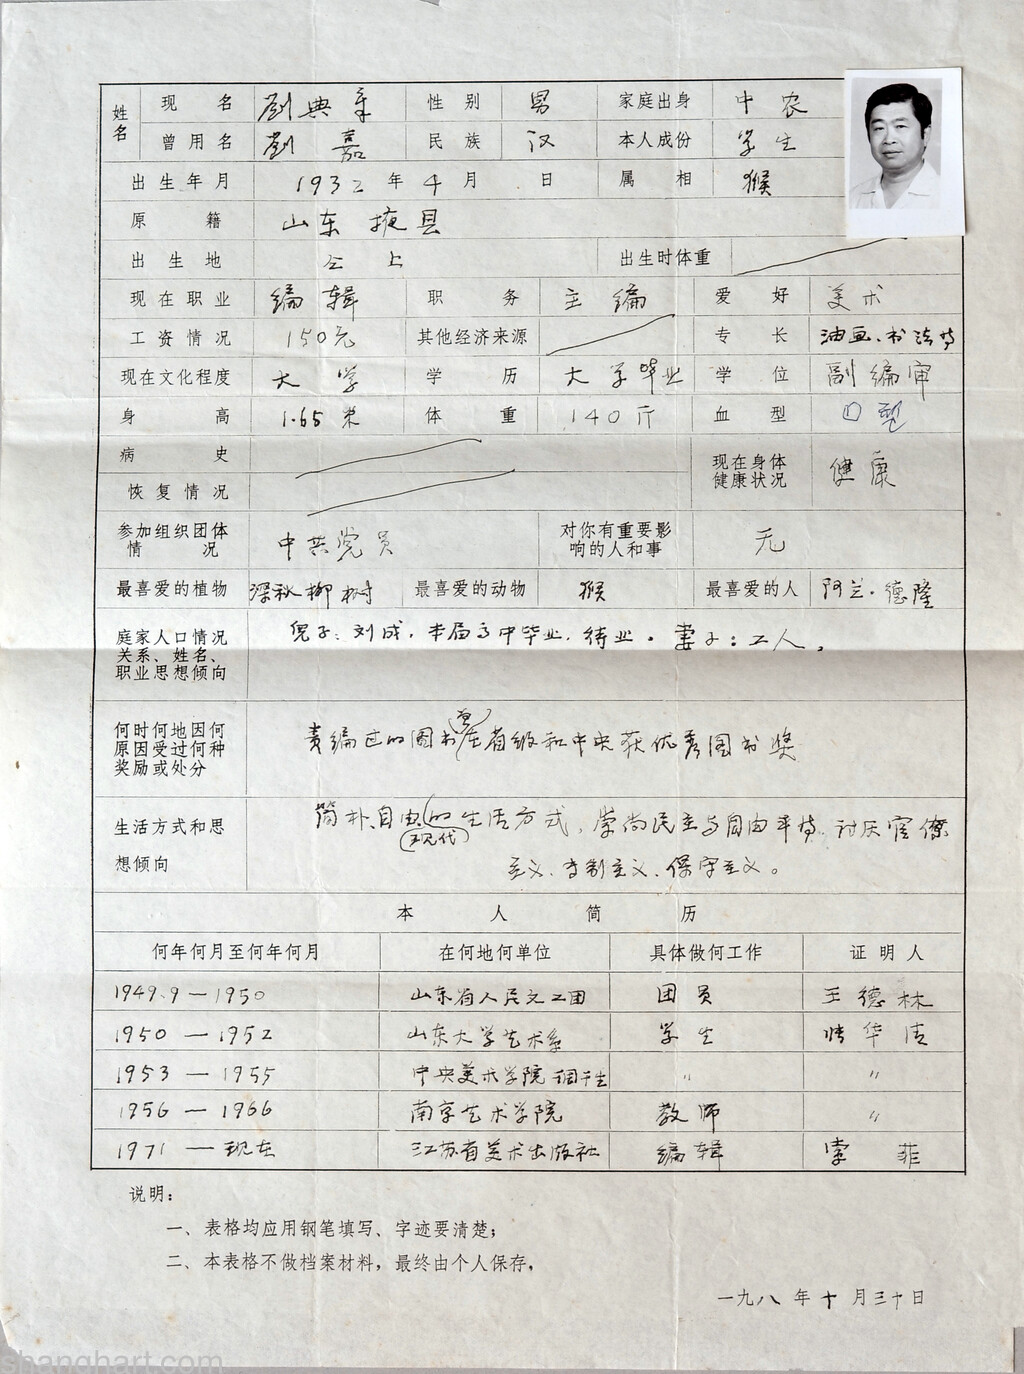 姓名 现名 劉典章 性别 男 家庭出身 中农
曾用名 劉嘉 民族 汉 本人成份 学生
出生年月 1932年4月 日 属相 猴
原籍 山东掖县
出生地 仝上 出生时体重
现在职业 编辑 职务 主编 爱好 美术
工资情况 150元 其他经济来源 专长 油画、书法等
现在文化程度 大学 学历 大学毕业 学位 副编审
身高 1.65米 体重 140斤 血型 O型
病史 现在身体健康状况 健康
恢复情况
参加组织团体情况 中共党员 对你有重要影响的人和事 无
最喜爱的植物 深秋柳树 最喜爱的动物 猴 最喜爱的人 阿兰·德隆
庭家人口情况 儿子:刘成,本届高中毕业,待业。妻子:工人,
关系、姓名、
职业思想倾向
何时何地因何
原因受过何种 责编过的图书在省级和中央获优秀图书奖
奖励或处分
生活方式和思 简朴、自由的(现代)生活方式,崇尚民主与自由平等,讨厌官僚
想倾向 主义、专制主义、保守主义。
本人简历
何年何月至何年何月 在何地何单位 具体做何工作 证明人
1949.9—1950 山东省人民文工团 团员 王德林
1950—1952 山东大学艺术系 学生 华清
1953—1955 中央美术学院调干生 〃 〃
1956—1966 南京艺术学院 教师 〃
1971—现在 江苏省美术出版社 编辑 索菲
说明:
一、表格均应用钢笔填写、字迹要清楚;
二、本表格不做档案材料,最终由个人保存,
一九八 年十月三十日
shanghart.com